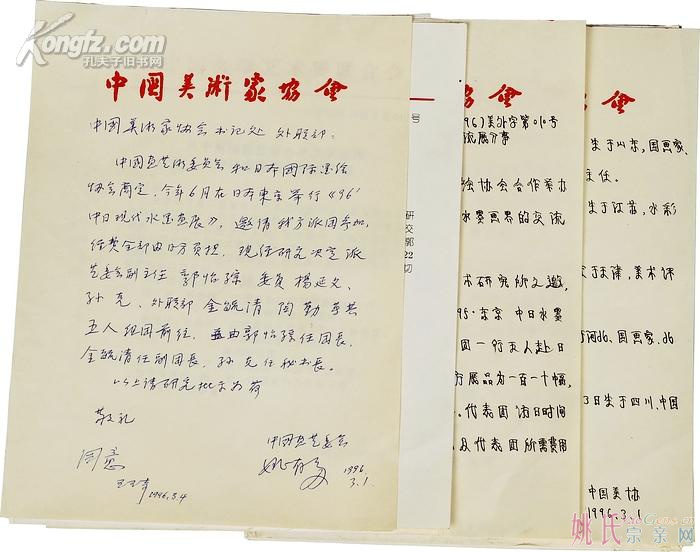 Kongfz.com
孔夫子旧书网
中国美術家協會
中国美术家协会书记处 外联部:
中国画艺术委员会和日本国际墨绘
协会商定,今年6月在日本东京举行《96'
中日现代水墨画展》,邀请我方派团参加,
经费全部由日方负担,现经研究决定派
艺委会副主任 郭怡孮 委员 杨延文、
孙克、外联部 金毓清 陶勤 等共
五人组团前往,并由郭怡孮任团长,
金毓清任副团长,孙克任秘书长。
以上请研究批示为荷
敬礼
中国画艺委会
姚有多 1996.
3.1.
同意
1996.3.4
号
研
交郭
22
切
協會
96)美外字第010号
流展分事
协会合作举办
水墨画界的交流
术研究所之邀,
95·东京 中日水墨
团一行五人赴日
展品为一百一十幅,
。代表团访日时间
及代表团所需费用
會
生于山东,国画家、
主任。
生于江苏,水彩
生于天津,美术评
河北、国画家、
3日生于四川、中国
中国美协
1996.3.1
姚氏宗亲网